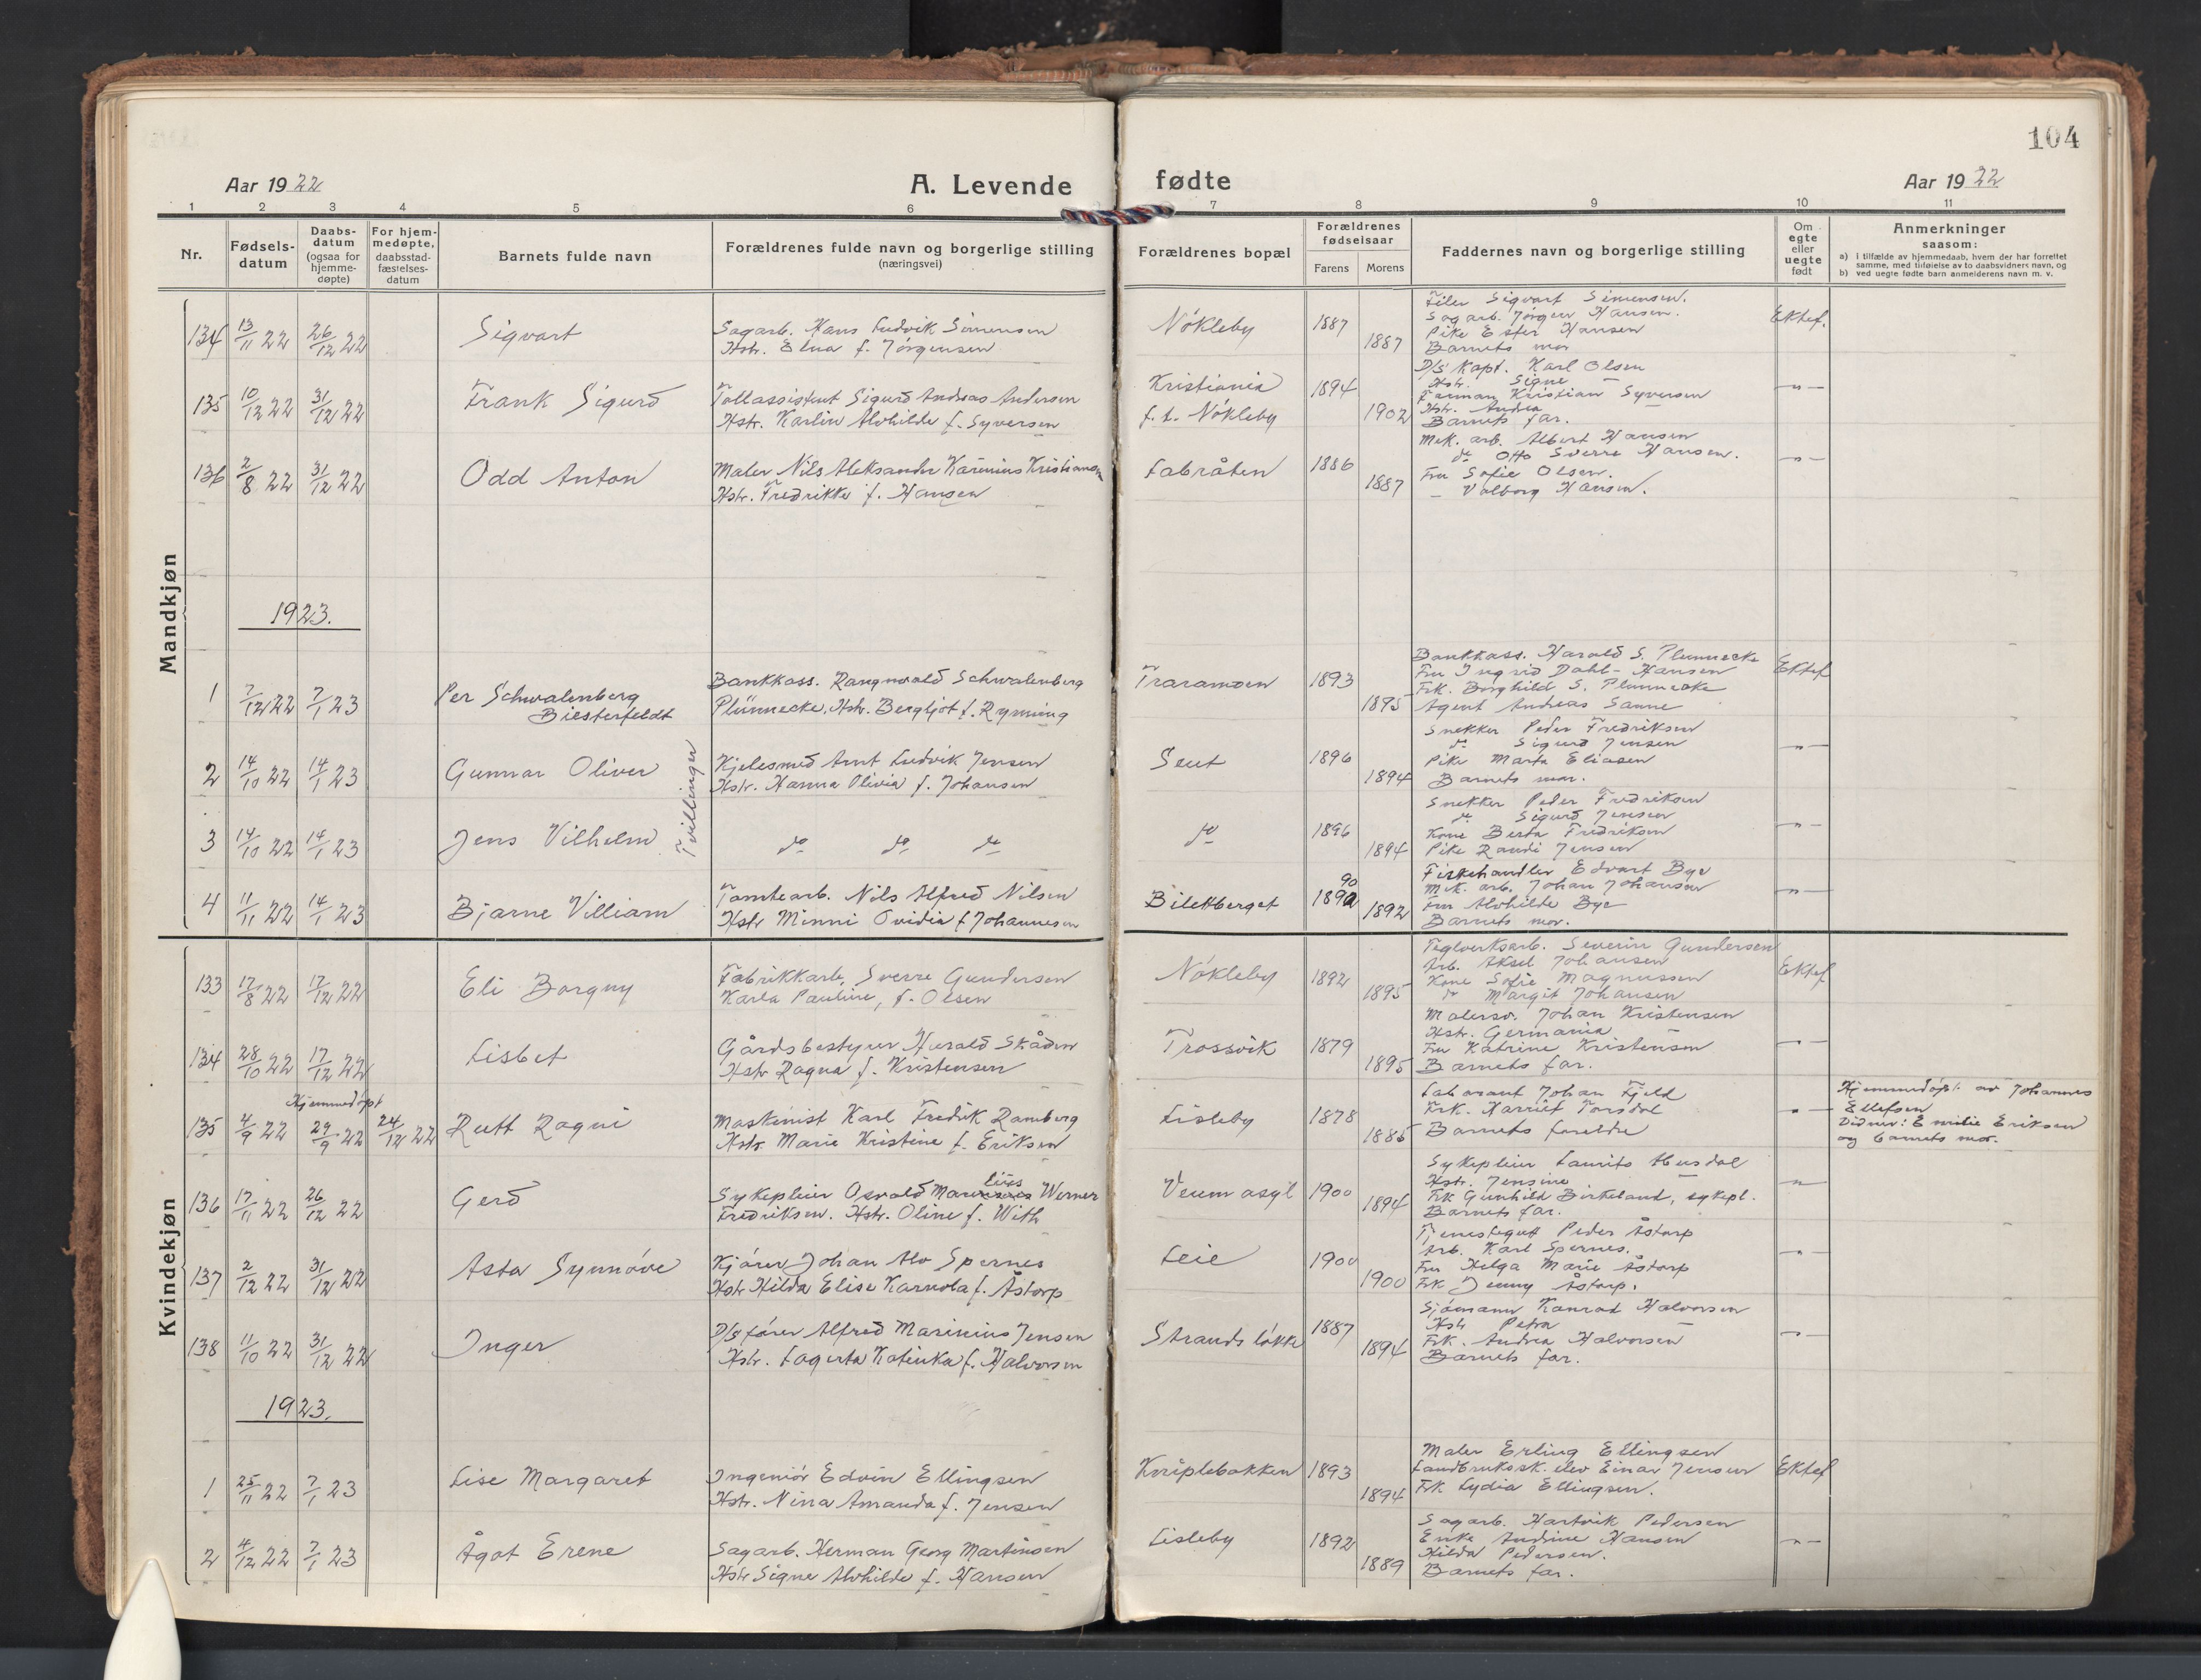 104
Aar 1922
A. Levende fødte
Aar 1922
1 2 3 4 5 6 7 8 9 10 11
Nr.
Fødsels-
datum
Daabs-
datum
(ogsaa for
hjemme-
døpte)
For hjem-
medøpte,
daabsstad-
fæstelses-
datum
Barnets fulde navn
Forældrenes fulde navn og borgerlige stilling
(næringsvei)
Forældrenes bopæl
Forældrenes
fødselsaar
Farens Morens
Faddernes navn og borgerlige stilling
Om
egte
eller
uegte
født
Anmerkninger
saasom:
a) i tilfælde av hjemmedaab, hvem der har forrettet
samme, med tilføielse av to daabsvidners navn, og
b) ved uegte fødte barn anmelderens navn m. v.
Mandkjøn
134 13/11 22 26/12 22 Sigvart
Sagarb. Hans Ludvik Simensen
Hstr. Elna f. Jørgensen
Nökleby 1887 1887
Filer Sigvart Simensen.
Sagarb. Jørgen Hansen.
Pike Ester Hansen
Barnets mor
Ektef.
135 10/12 22 31/12 22 Frank Sigurd
Tollassistent Sigurd Andreas Andersen
Hstr. Karlin Alvhilde f. Syversen
Kristiania
f. t. Nökleby
1894 1902
D/S Kapt. Karl Olsen
Hstr. Signe —
Formann Kristian Syversen
Hstr. Andrea —
Barnets far.
—"—
136 2/8 22 31/12 22 Odd Anton
Maler Nils Aleksander Karenius Kristiansen
Hstr. Fredrikke f. Hansen
Labråten 1886 1887
Mek. arb. Albert Hansen
do Otto Sverre Hansen.
Fru Sofie Olsen.
— Valborg Hansen.
—"—
1923.
1 7/12 22 7/1 23 Per Schwalenberg
Biesterfeldt
Bankkass. Rangnvald Schwalenberg
Plünnecke, Hstr. Bergljot f. Rynning
Traramoen 1893 1895
Bankkass. Harald S. Plunnecke
Fru Ingrid Dahl-Hansen
Frk. Borghild S. Plunnecke
Agent Andreas Sanne
Ektef
2 14/10 22 14/1 23 Gunnar Oliver
Tvillinger
Kjelesmed Arnt Ludvik Jensen
Hstr. Hanna Olivia f. Johansen
Seut 1896 1894
Snekker Peder Fredriksen
do Sigurd Jensen
Pike Marta Eliasen
Barnets mor.
—"—
3 14/10 22 14/1 23 Jens Vilhelm
do do do
do 1896 1894
Snekker Peder Fredriksen
do Sigurd Jensen
Kone Berta Fredriksen
Pike Randi Jensen
—"—
4 11/11 22 14/1 23 Bjarne Villiam
Tomtearb. Nils Alfred Nilsen
Hstr Minni Ovidia f Johannesen
Biletberget 90 1892
Fiskehandler Edvart Bye
Mek. arb. Johan Johansen
Fru Alvhilde Bye
Barnets mor.
—"—
Kvindekjøn
133 17/8 22 17/12 22 Eli Borgny
Fabrikkarb. Sverre Gundersen
Karla Pauline, f. Olsen
Nökleby 1892 1895
Teglverksarb. Severin Gundersen
Arb. Aksel Johansen
Kone Sofie Magnussen
do Margit Johansen
Ektef
134 28/10 22 17/12 22 Lisbet
Gårdsbestyrer Harald Skåden
Hstr Ragna f. Kristensen
Trossvik 1879 1895
Malersv. Johan Kristensen
Hstr. Germania —
Fru Katrine Kristensen
Barnets far.
—"—
Hjemmedöpt
135 4/9 22 29/9 22 24/12 22 Rutt Ragni
Maskinist Karl Fredrik Ramberg
Hstr Marie Kristine f. Eriksen
Lisleby 1878 1885
Laborant Johan Fjeld
Frk. Harriet Torsdal
Barnets foreldre
—"—
Hjemmedöpt av Johannes
Ellefsen
Vidner: Emilie Eriksen
og barnets mor.
136 17/11 22 26/12 22 Gerd
Sykepleier Osvald Marelius Werner
Fredriksen. Hstr. Oline f. With
Veum asyl 1900 1894
Sykepleier Laurits Husdal
Hstr. Jensine —
Frk Gunhild Birkeland, sykepl.
Barnets far.
—"—
137 2/12 22 31/12 22 Asta Synnöve
Kjörer Johan Alv Spernes
Hstr Hilda Elise Karnola f. Åstorp
Leie 1900 1900
Tjenestegutt Peder Åstorp
Arb. Karl Spernes.
Fru Helga Marie Åstorp
Frk Jenny Åstorp.
—"—
138 11/10 22 31/12 22 Inger
D/S förer Alfred Marinius Jensen
Hstr. Lagerta Katinka f. Halvorsen
Strandsløkke 1887 1894
Sjömann Konrad Halvorsen
Hstr Petra —
Frk. Andrea Halvorsen
Barnets far.
—"—
1923.
1 25/11 22 7/1 23 Lise Margaret
Ingeniör Edvin Ellingsen
Hstr. Nina Amanda f. Jensen
Kriplebakken 1893 1894
Maler Erling Ellingsen
Landbrukssk. elev Einar Jensen
Frk Lydia Ellingsen.
Ektef
2 4/12 22 7/1 23 Ågot Erene
Sagarb. Herman Georg Martinsen
Hstr Signe Alvhilde f. Hansen
Lisleby 1892 1889
Sagarb. Hartvik Pedersen
Enke Andrine Hansen
Hilda Pedersen.
Barnets far.
—"—